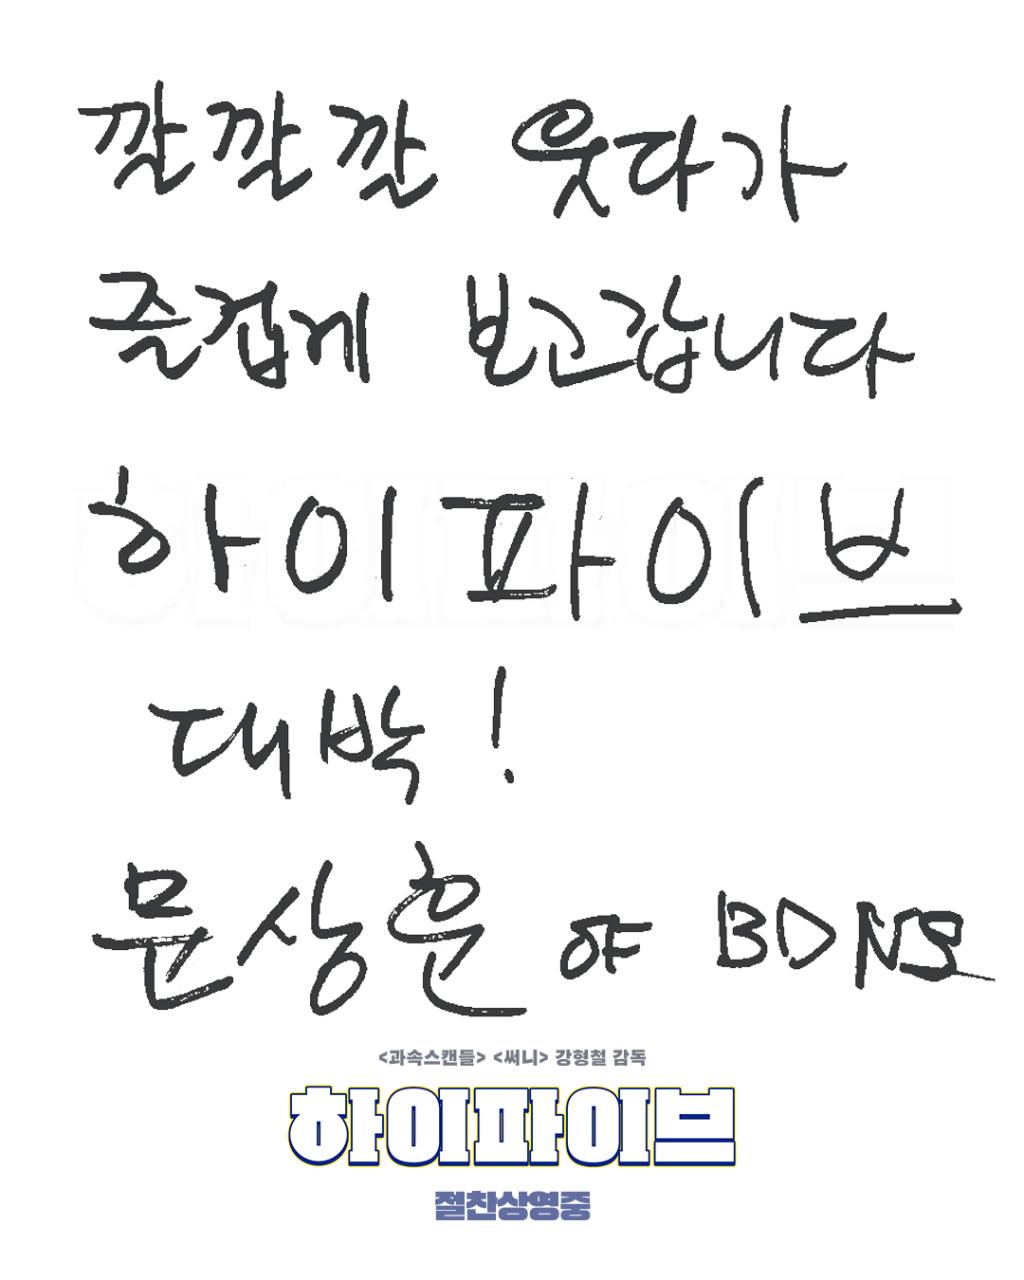 깔깔깔 웃다가
즐겁게 보고갑니다
하이파이브
대박!
문상훈 of BDNS
<과속스캔들> <써니> 강형철 감독
하이파이브
절찬상영중